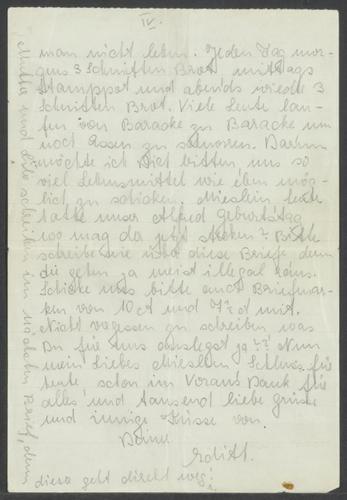 IV.
man nicht leben. Jeden Tag mor-
gens 3 Schnitten Brot mittags
Stamppot und abends wieder 3
Schnitten Brot. Viele Leute lau-
fen von Baracke zu Baracke um
noch Essen zu
möchte ich Dich bitten uns so
viel Lebensmittel wie eben mög-
lich zu schicken. Mieslein heute
hatte unser Alfred Geburtstag
wo mag da jetzt stecken? Bitte
schreibe wie diese Briefe, denn
die gehen ja meist illegal raus.
Schicke uns bitte auch Briefmar-
ken von 10 ct und 7½ ct mit.
Nicht vergessen zu schreiben was
Du für uns ja?? Nun
mein liebes Mieslein Schluss für
heute, schon im Voraus Dank für
alles, und tausend liebe Grüße
und innige Küsse von.
Deine
Edith.
diese geht direkt weg!
Mutter und schreiben im nächsten Brief, denn